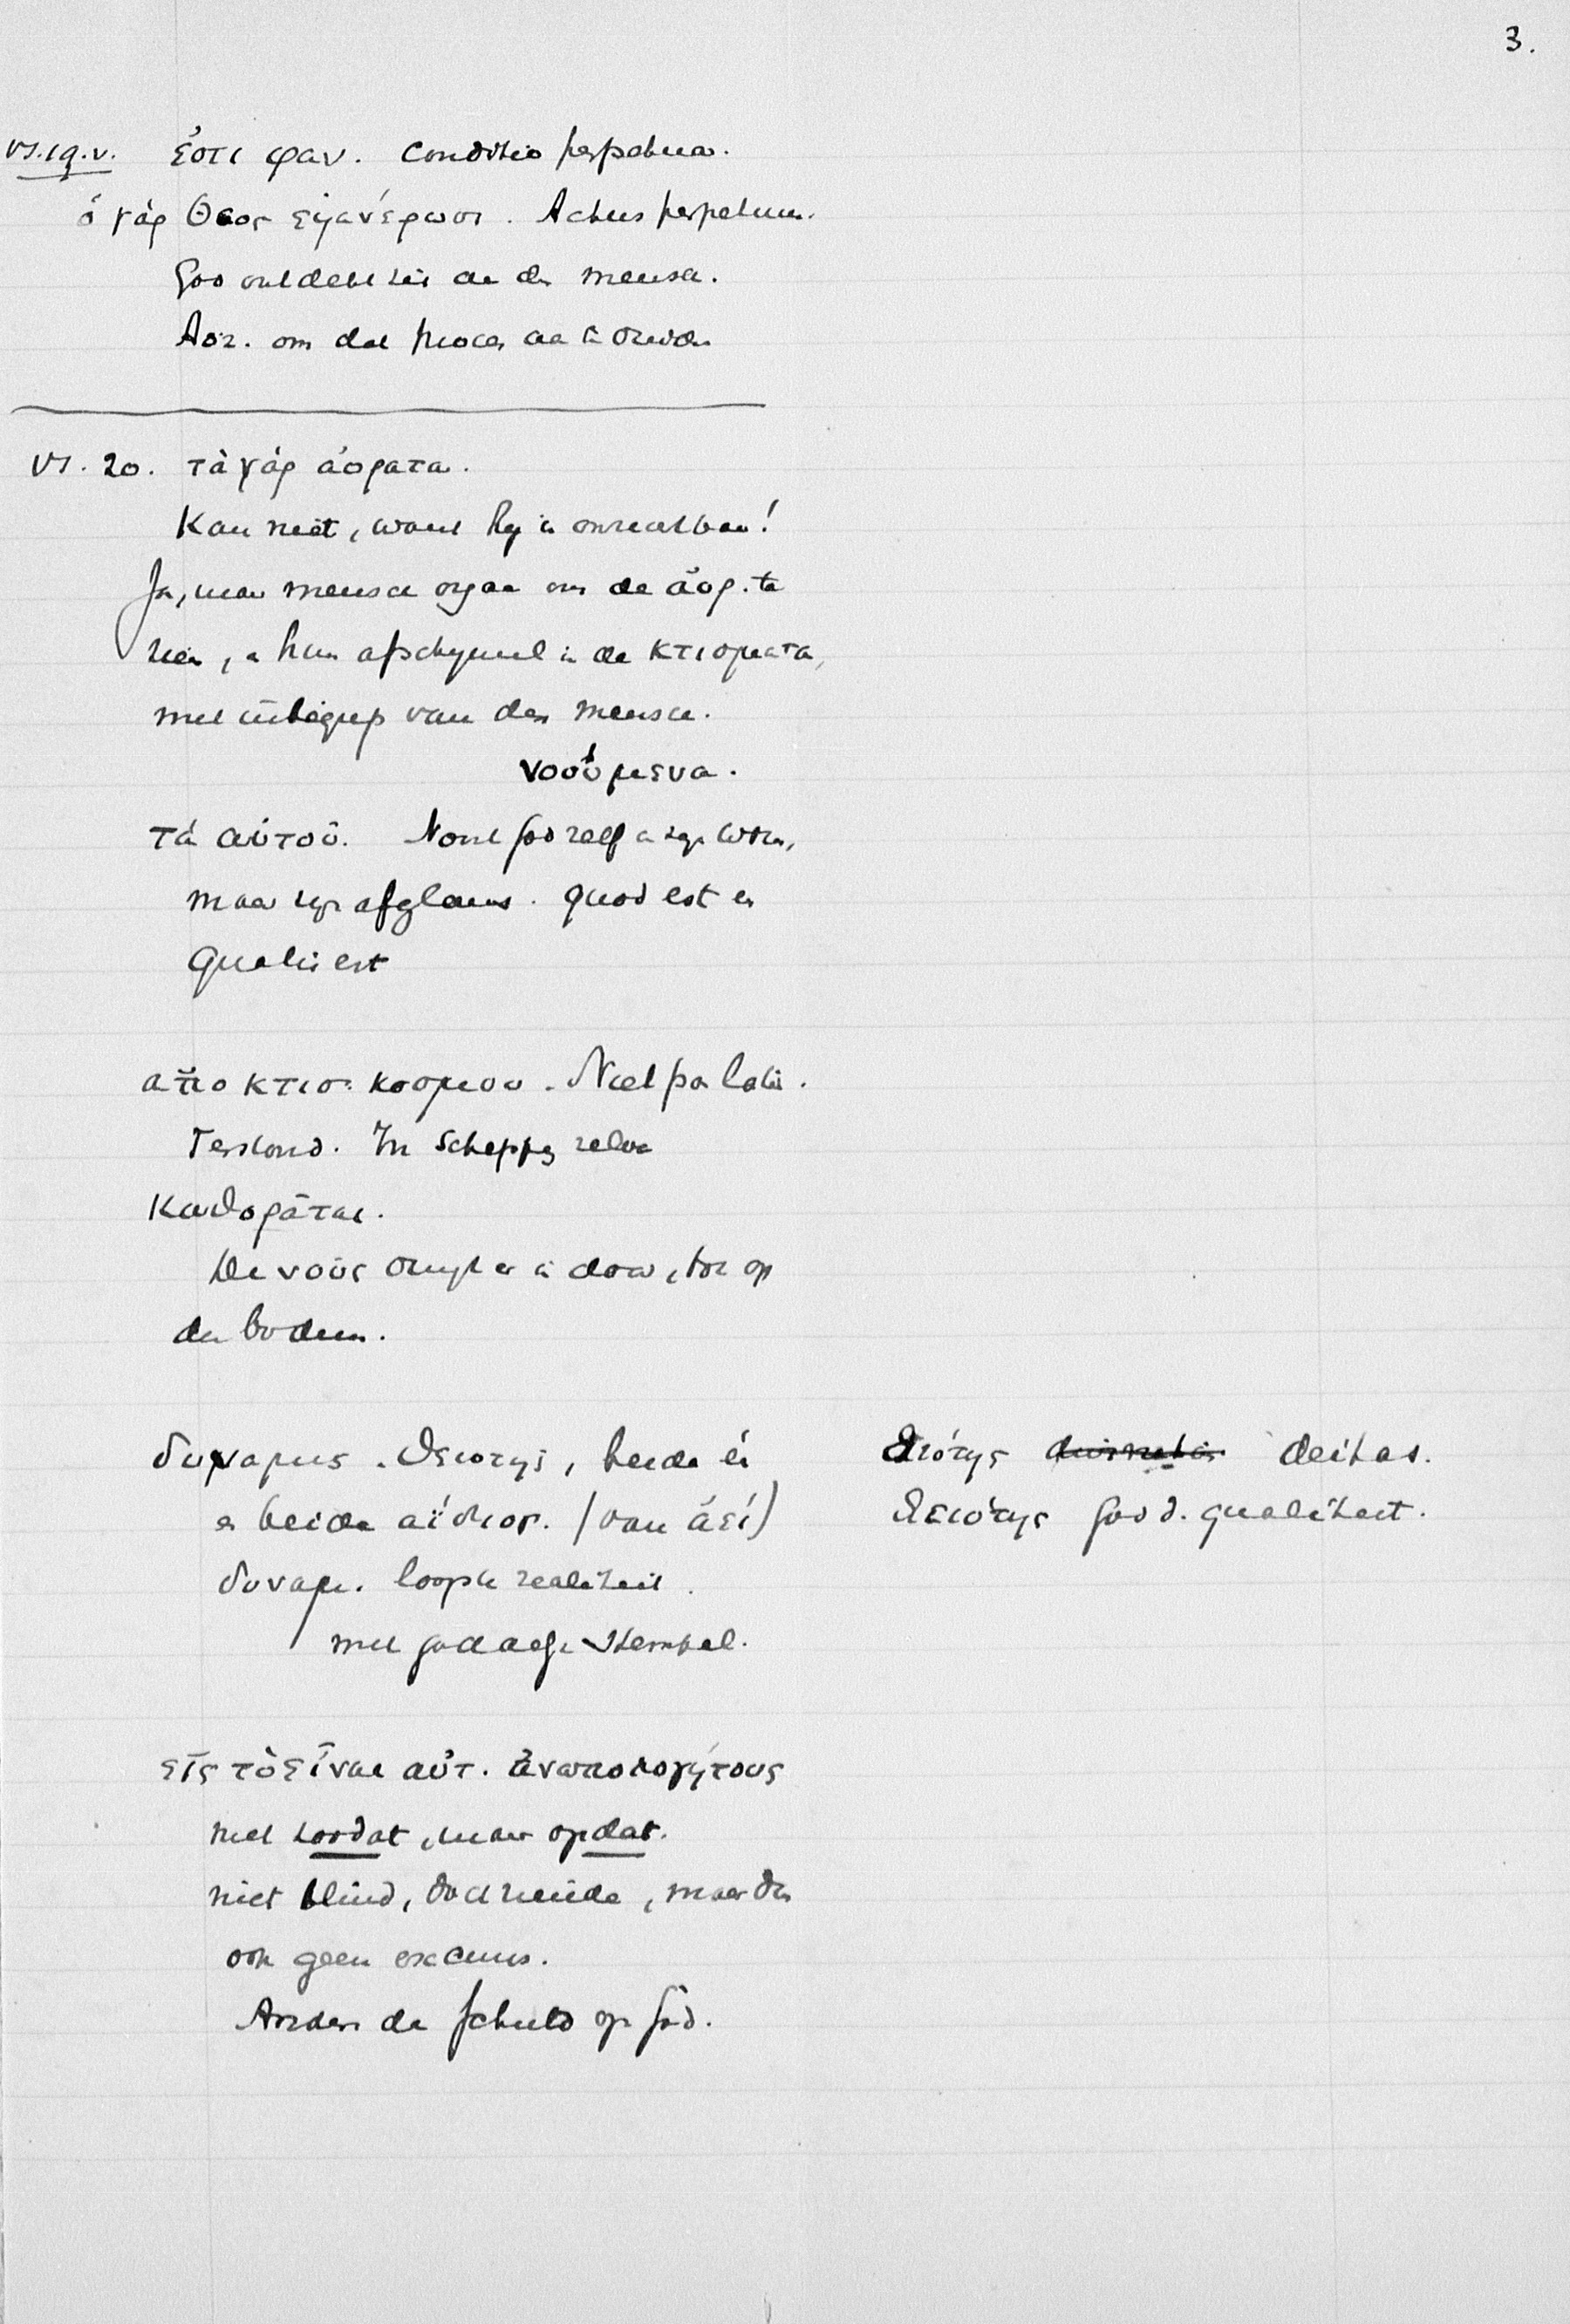 3.
vs. 19.v. ἐστι φαν. Conditio perpetua.
ὁ γὰρ Θεος εφανέρωσε. Actus perpetuus.
God ontdekt zich aan den mensch.
Aor. om dat proces aan te
vs. 20. τὰ γὰρ ἀόρατα.
Kan niet, want hy is onzichtbaar!
Ja, maar mensch orgaan om de ἀορ. te
zien, en hun afschynsel in de κτισματα,
met inbegrip van den mensch.
νοούμενα.
τὰ αὐτοῦ. Nooit God zelf in zyn wezen,
maar zyn afglans. quod est en
qualis est
ἀπο κτισ. κοσμου. Niet pas later.
Terstond. In Schepping zelve
Καθορᾶται.
De νοῦς dringt er in door, tot op
den bodem.
δυναμις. θειοτης, beide één
en beide αΐδιος. (van ἀεί)
δυναμ. loopende realiteit.
met goddelyk stempel.
θεότης deitas.
θειότης godd. qualiteit.
εἰς τὸ εἶναι αὐτ. ἀναπολογήτους
niet zoodat, maar opdat.
niet blind, doch ziende, maar dan
ook geen excuus.
Anders de schuld op God.